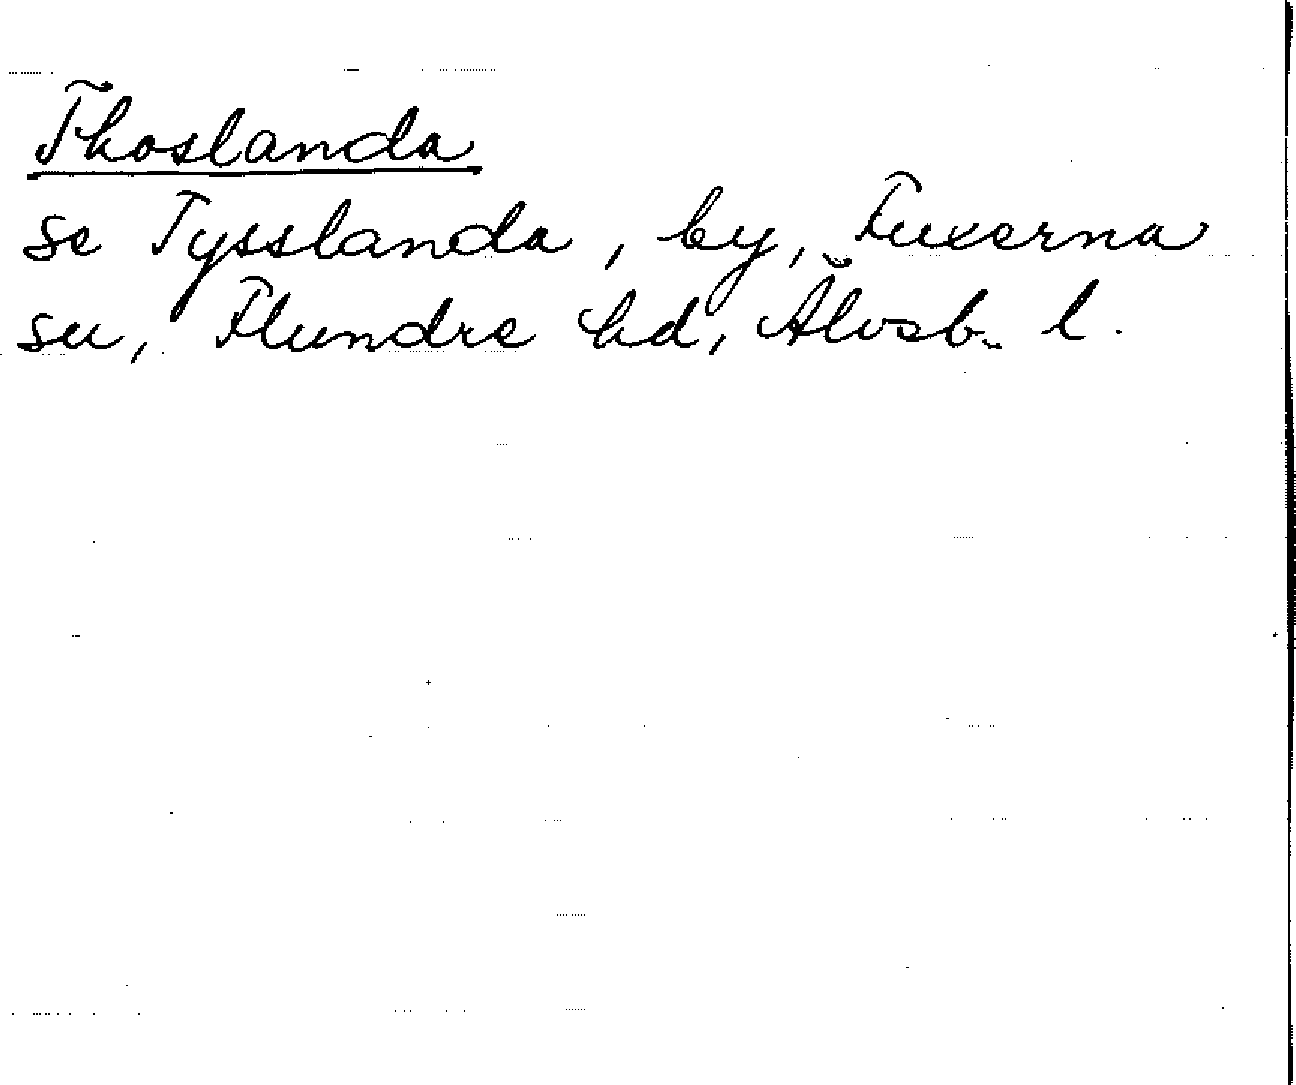 Thoslanda
se Tysslanda, by, Fuxerna
su, Flundre hd, Älvsb. l.